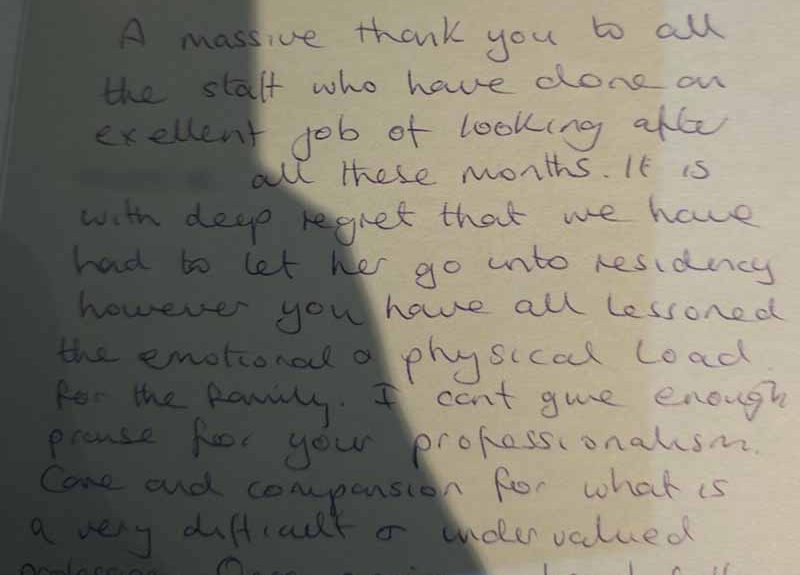 A massive thank you to all
the staff who have done an
exellent job of looking after
all these months. It is
with deep regret that we have
had to let her go into residency
however you have all lessoned
the emotional & physical load
for the family. I cant give enough
praise for your professionalism.
Care and compansion for what is
a very difficult & undervalued
profession. Once